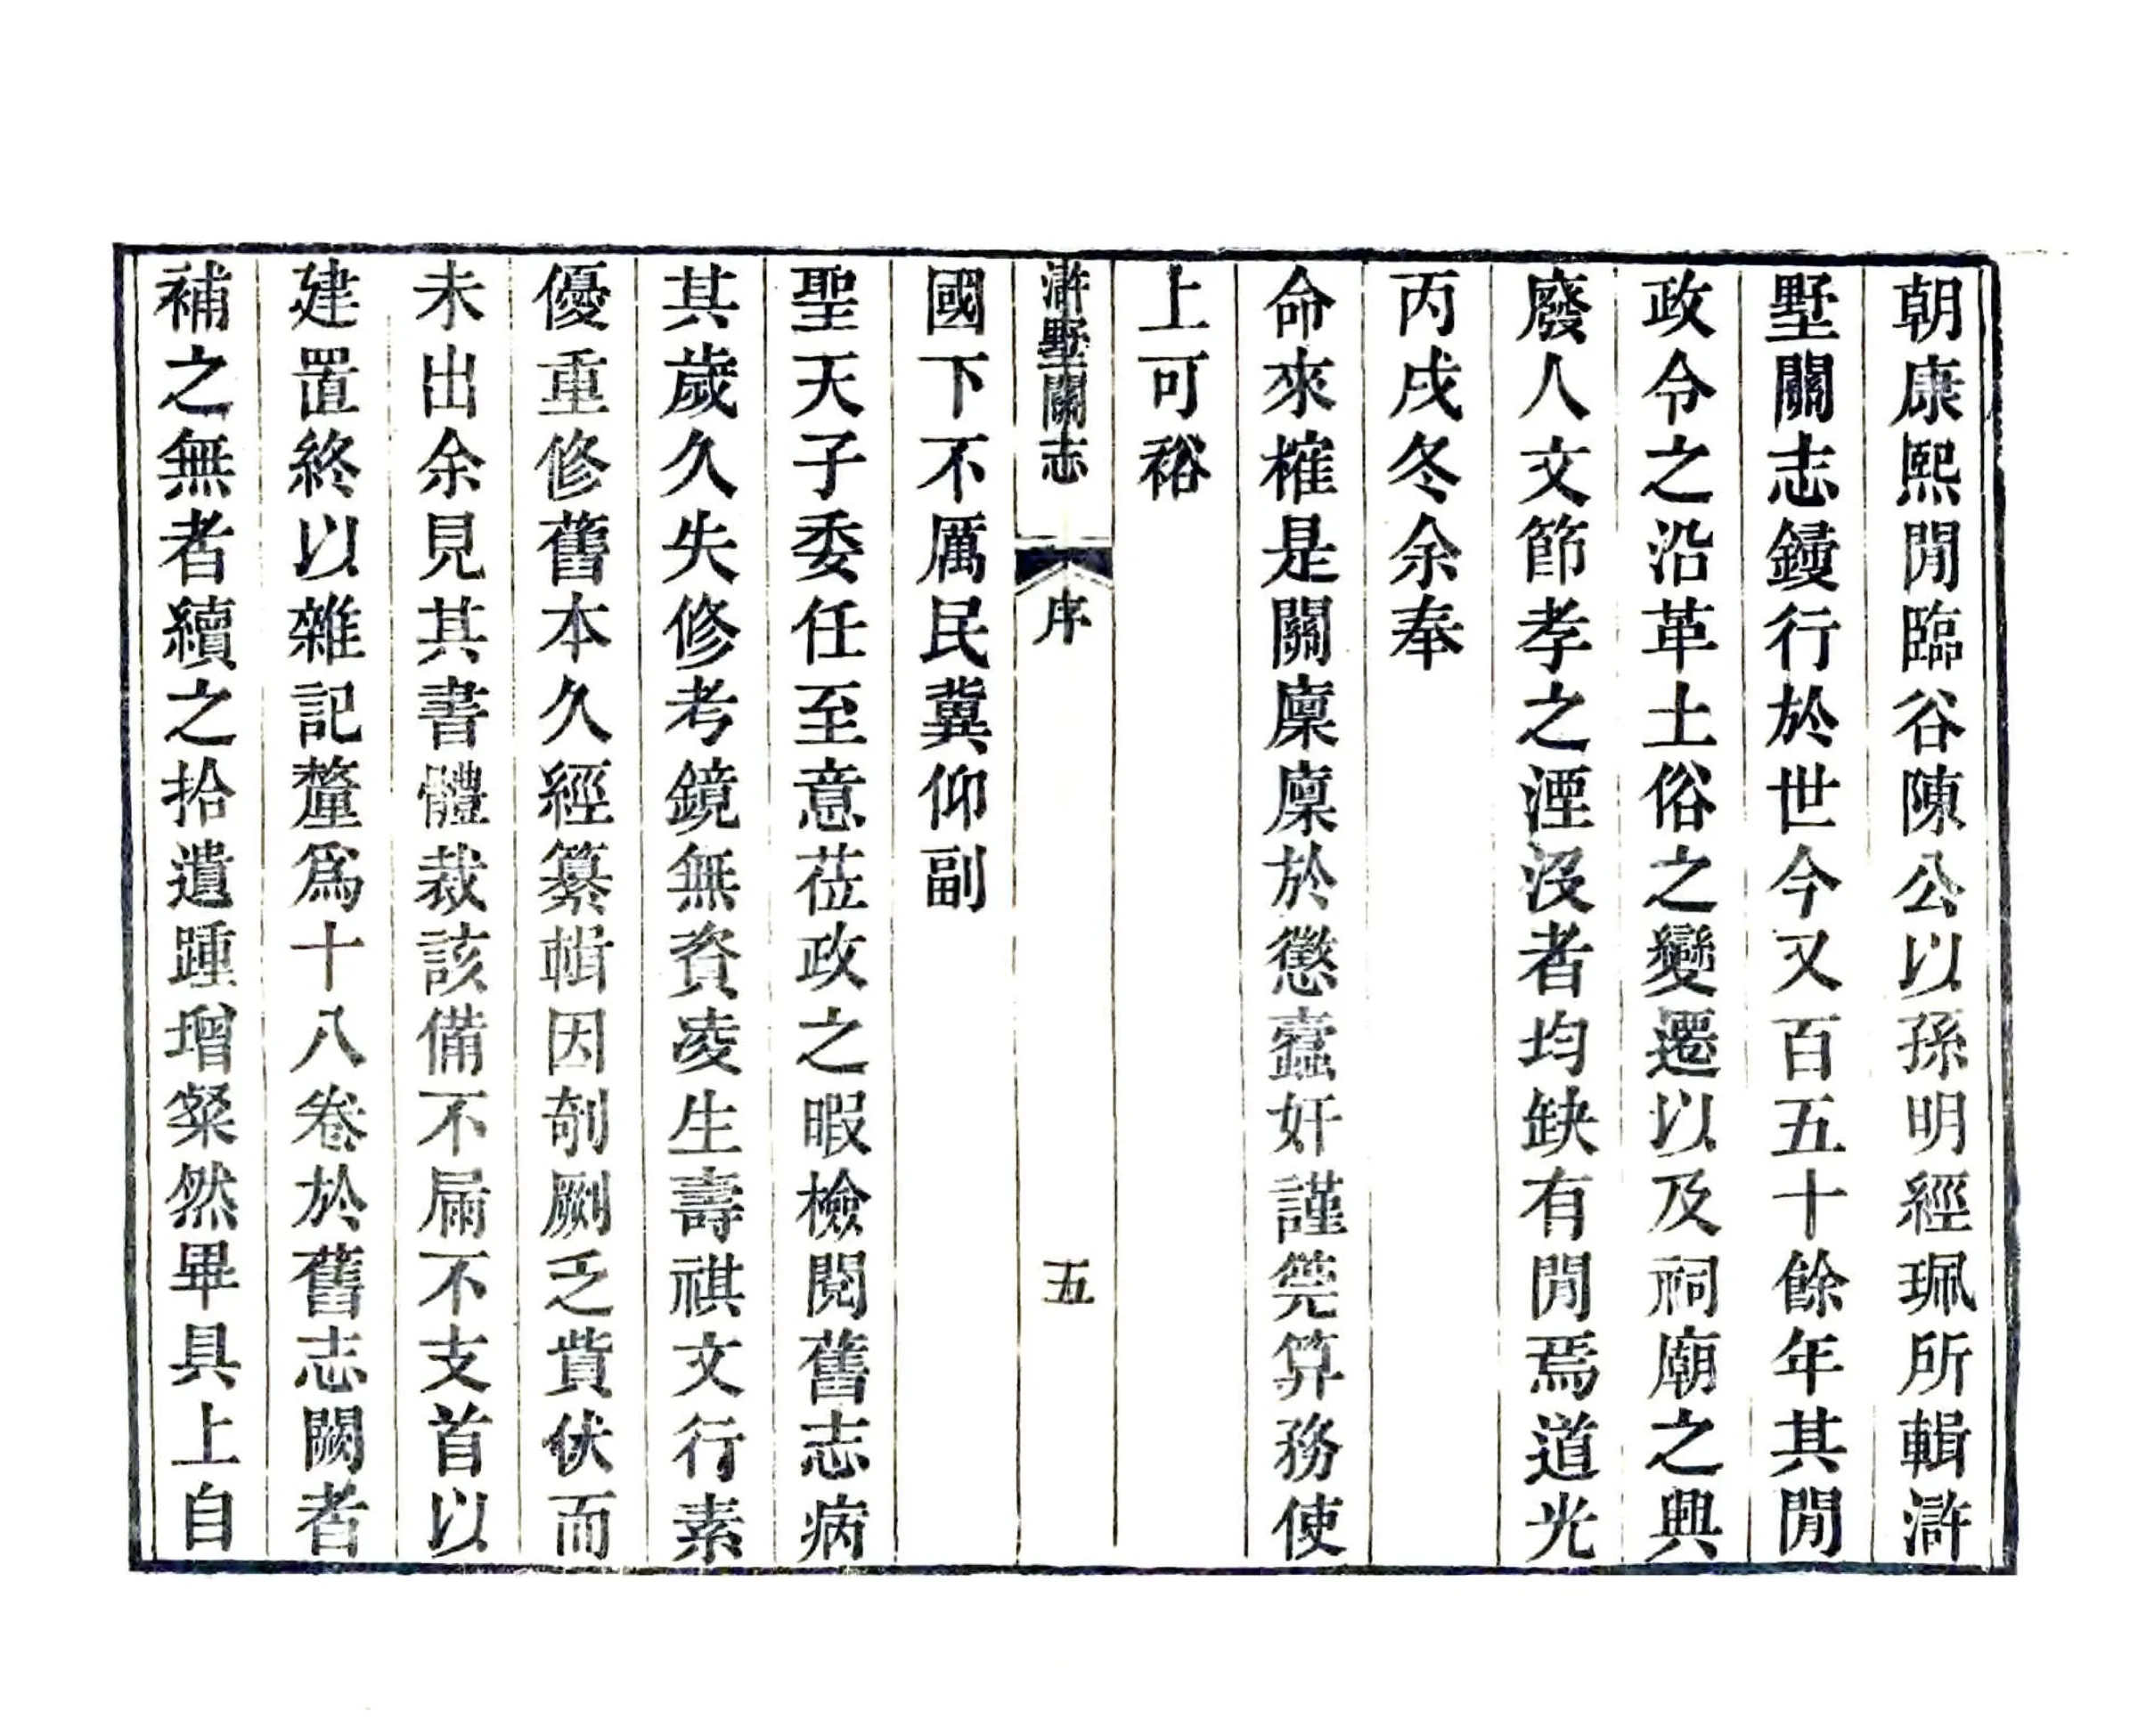 朝康熙閒臨谷陳公以孫明經珮所輯滸
墅關志鋟行於世今又百五十餘年其閒
政令之沿革土俗之變遷以及祠廟之興
廢人文節孝之湮沒者均缺有閒焉道光
丙戌冬余奉
命來榷是關廩廩於懲蠹奸謹筦算務使
上可裕
滸墅關志
序
五
國下不厲民冀仰副
聖天子委任至意莅政之暇檢閱舊志病
其歲久失修考鏡無資凌生壽祺文行素
優重修舊本久經纂輯因剞劂乏貲伏而
未出余見其書體裁該備不屚不支首以
建置終以雜記釐爲十八卷於舊志闕者
補之無者續之拾遺踵增粲然畢具上自